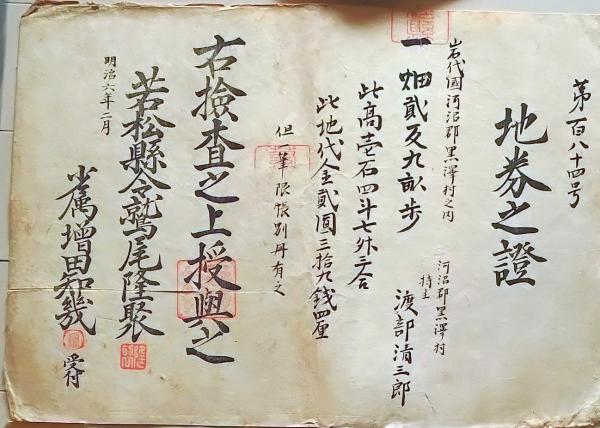 第百八十四号
地券之證
岩代國河沼郡黒澤村之内
一畑貳反九畝歩
河沼郡黒澤村
持主
渡部清三郎
此高壱石四斗七升三合
此地代金貳圓三拾九銭四厘
但一筆限帳別册有之
右檢査之上授與之
明治六年二月
若松縣令鷲尾隆聚
少属増田知幾
受付